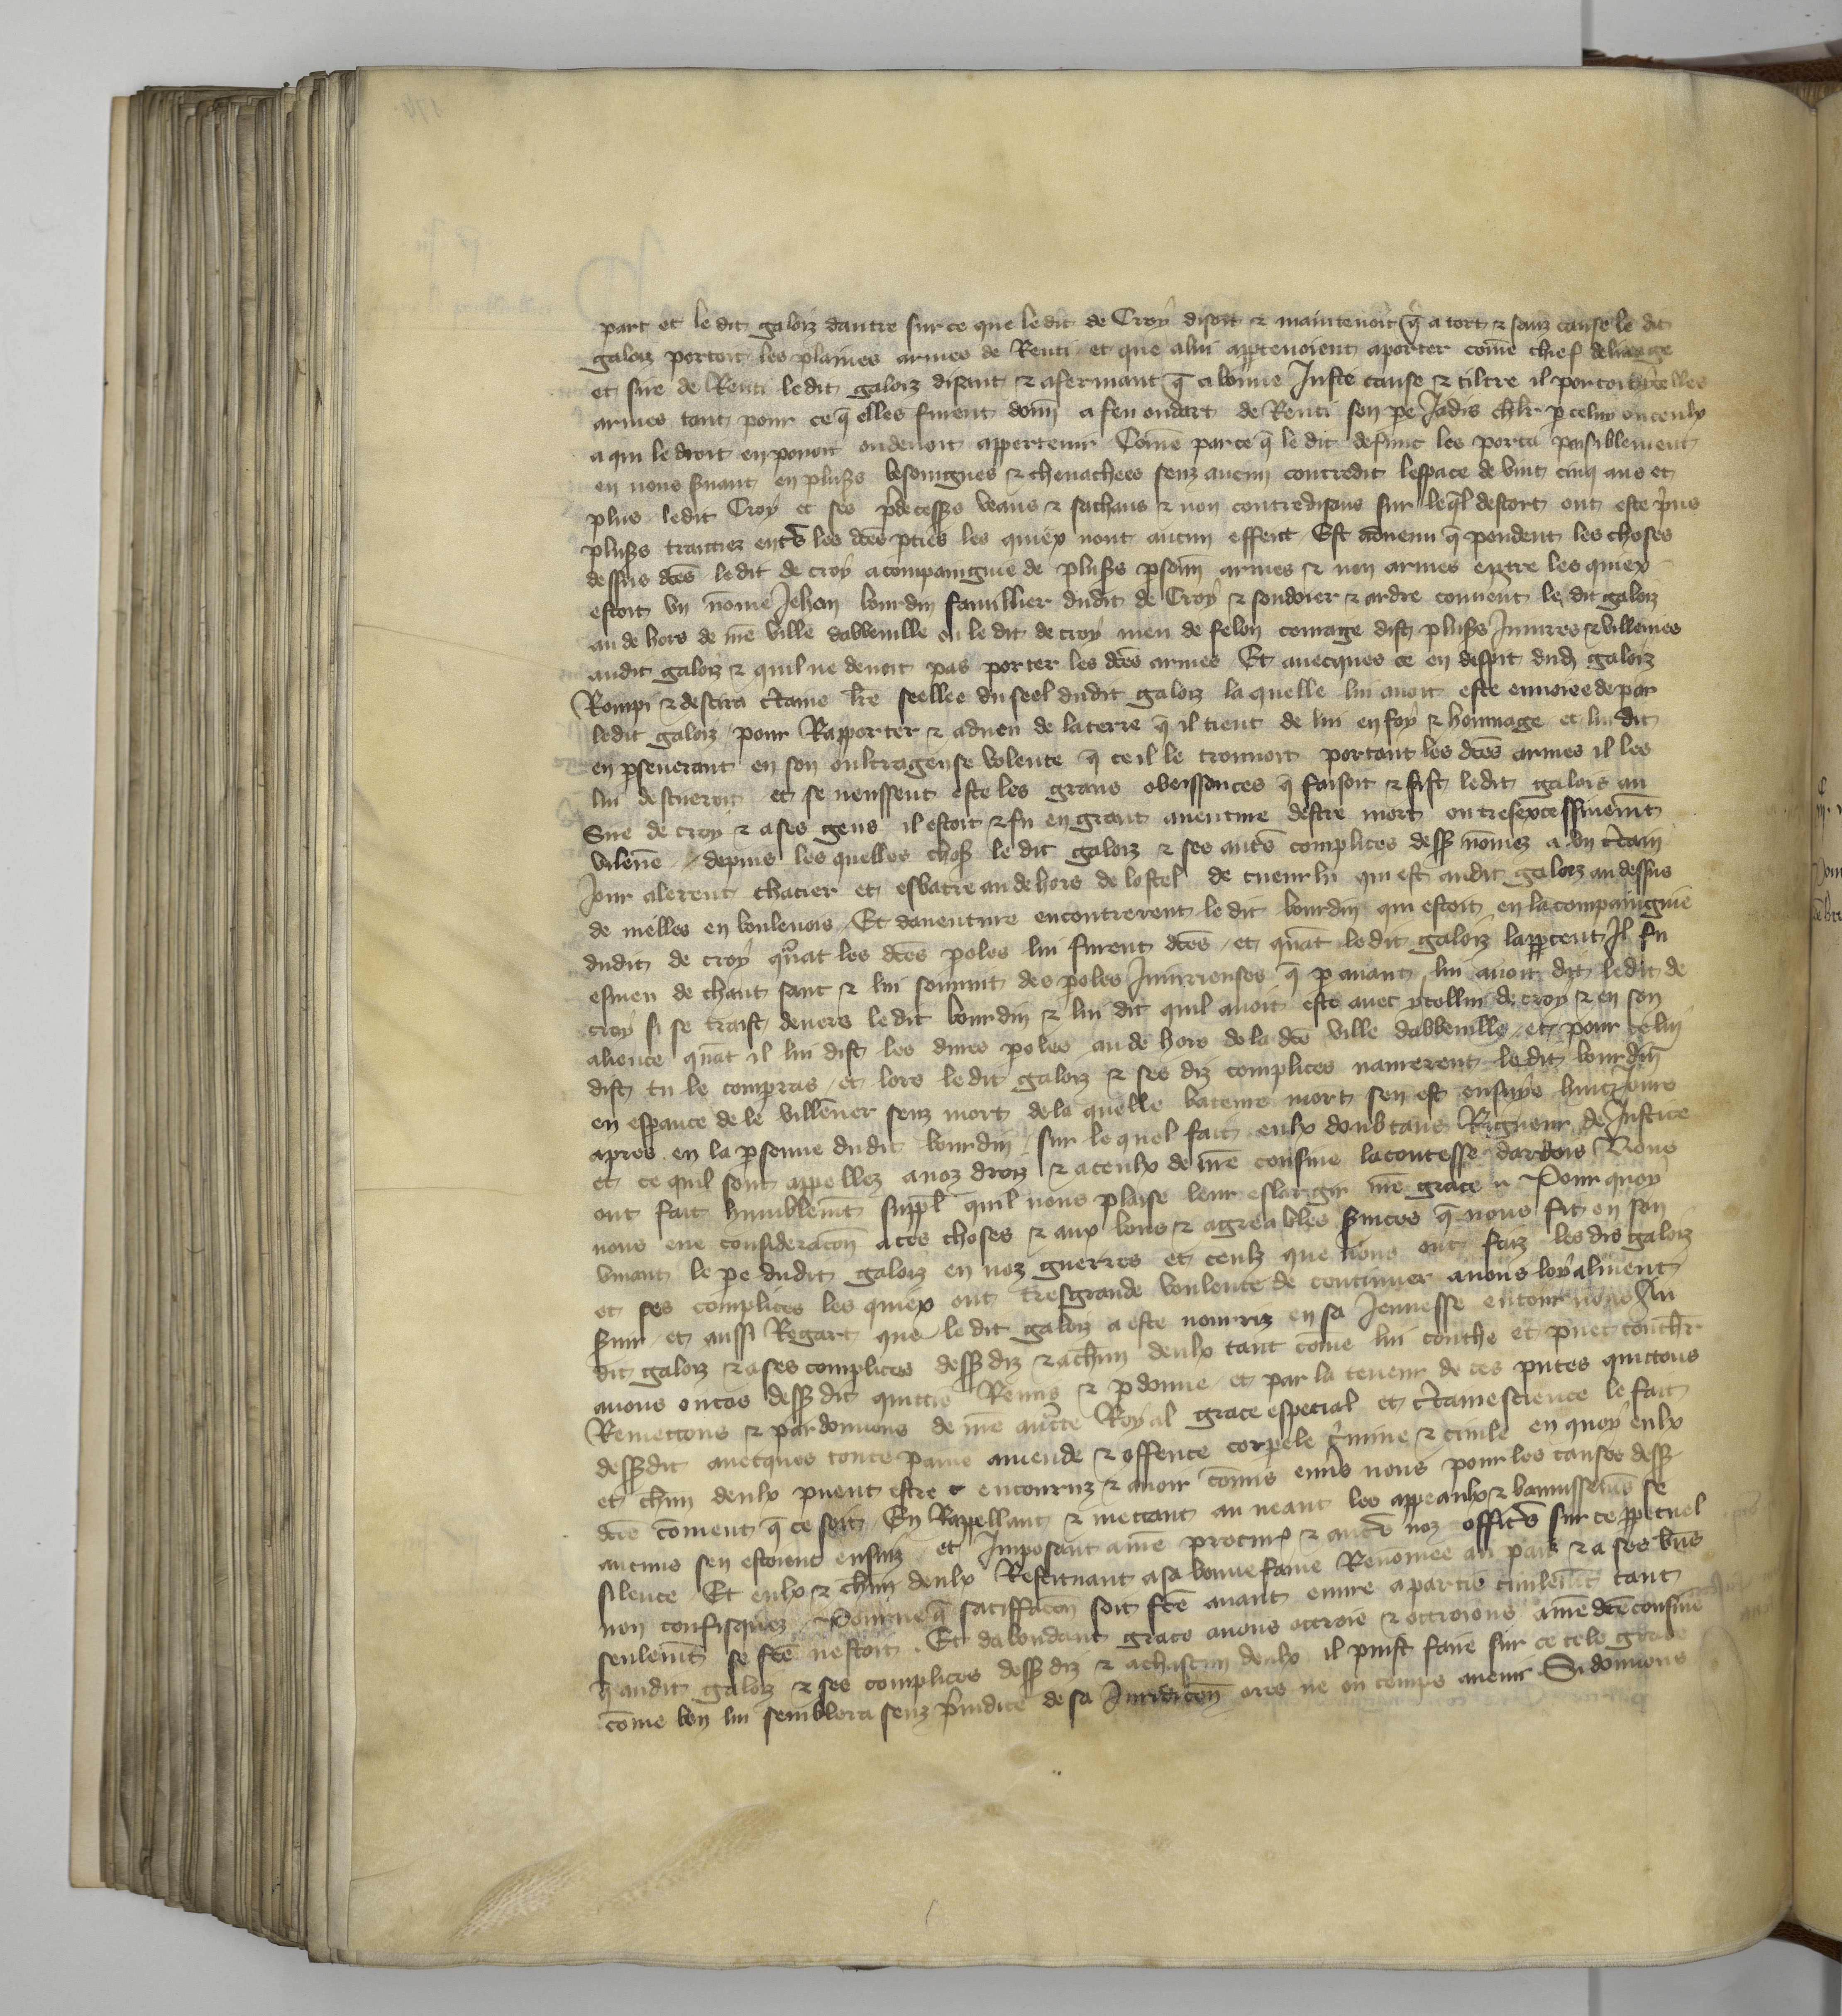 part et le dit galoiz dautre sur ce que le dit de Croy disoit & maintenoit q̄ a tort & sanz cause le dit
galoiz portoit les plaines armes de Renti et que a lui apptenoient a porter com̄e chief de linage
et sire de Renti le dit galoiz disant & afermant q̄ a bonne Juste cause & tiltre il portoit ycelles
armes tant pour ce q̄ elles furent donn̄ a feu oudart de Renti son pe Jadis chlr p celui ou ceulx
a qui le droit en pouoit ou deuoit appertenir Com̄e par ce q̄ le dit defunt les porta paisiblement
en nous s̄uant en plus̄s besoingnes & cheuachees senz aucun contredit lespace de vint cinq ans et
plus le dit Croy et ses p̄decess̄s veans & sachans & non contredisans sur leq̄l descort ont este p̄us
plus̄s traictiez entr̄ les dc̄es pties les quiex nont aucun effect Est aduenu q̄ pendent les choses
dessus dc̄es le dit de croy acompaingnie de plus̄s psonn̄ armes & non armes entre les quiex
estoit vn nōme Jehan bourdin famillier dudit de Croy & soudoier & ardre conuent le dit galoiz
au dehors de nr̄e ville dabbeuille ou le dit de croy meu de felon courage dist plus̄s Iniures & villenies
audit galoiz & quil ne deuoit pas porter les dc̄es armes Et auecques ce en despit dud galoiz
Rompi & descira c̄taine lr̄e seellee du seel dudit galoiz la quelle lui auoit este enuoiee de par
ledit galoiz pour Rapporter & adueu de la terre q̄ il tient de lui en foy & hommage et lui dit
en pseuerant en son oultrageuse volente q̄ ce il le trouuoit portant les dc̄es armes il les
lui desciroit et se neussent este les grans obeissances q̄ faisoit & fist ledit galois au
Sire de croy & a ses gens il estoit & fu en grant auenture destre mort ou tresexcessiuem̄t
vilene depuis les quelles chos̄ le dit galoiz & ses autr̄s complices dess̄ nōmez a vn c̄tain
Jour alerent chacier et esbatre au dehors de lostel de cuenrlu qui est audit galoiz au dessus
de nielles en boulenois Et dauenture encontrerent le dit bourdin qui estoit en la compaingnie
dudit de croy qūat les dc̄es poles lui furent dc̄es et qūat le dit galoiz lappcent Il fu
esmeu de chaut sanc & lui souuint des poles Iniurieuses q̄ p auant lui auoit dit ledit de
croy si se traist deuers le dit bourdin & lui dit quil auoit este auec ycellui de croy & en son
alience qūat il lui dist les dures poles au dehors de la dc̄e ville dabbeuille et pour ce lui
dist tu le compras et lors le dit galoiz & ses diz complices naurerent le dit bourdin
en esp̄ance de le villener senz mort de la quelle bateure mort sen est ensuye huit Jours
apres en la psonne dudit bourdin sur le quel fait eulx doubtans Rigueur de Justice
et ce quil sont appellez a noz droiz & a ceulx de nr̄e cousine la contesse dartois Nous
ont fait humblem̄t suppl̄ quil nous plaise leur eslargir nr̄e grace Pour quoy
nous eue consideracōn a ces choses & aux bons & agreables s̄uices q̄ nous fit en son
viuant le pe dudit galoiz en noz guerres et ceulz que nous ont faiz les dis galoiz
et ses complices les quiex ont tresgrande voulente de continuer a nous loyalment
s̄uir et aussi Regart que le dit galoiz a este nourriz en sa Jeunesse entour nous Au
dit galoiz & a ses complices dess̄ diz & a chūn deulx tant cōme lui touche et puet touchr̄
auons ou cas dess̄ dit quitte Remis & pdonne et par la teneur de ces p̄ntes quittons
Remettons & pardonnons de nr̄e auct̄te Royal grace especial et c̄taine science le fait
dess̄ dit auecques toute paine amende & offence corpele c̄imine & ciuile en quoy eulx
et chūn deulx puent estre encouruz & auoir cōmis enūs nous pour les causes dess̄
dc̄e cōment q̄ ce soit En Rappellant & mettant au neant les appeaulx & bannissem̄s se
aucuns sen estoient ensuiz et Imposant a nr̄e procur̄ & autr̄s noz offic̄s sur ce ppetuel
silence Et eulx & chūn deulx Restituant a sa bonne fame Renōmee au pais & a ses bn̄s
non confisquez Pourueu q̄ satiffacōn soit fc̄e auant euure a partie ciuilem̄t tant
seulem̄t se fc̄e nestoit Et dabondant grace auons octroie & octroions a nr̄e dc̄e cousine
q̄ audit galoiz & ses complices dess̄ diz & a chascun deulx il puist faire sur ce tele grace
cōme bon lui semblera senz p̄iudice de sa Juridicōn ores ne ou temps auenir Si donnons